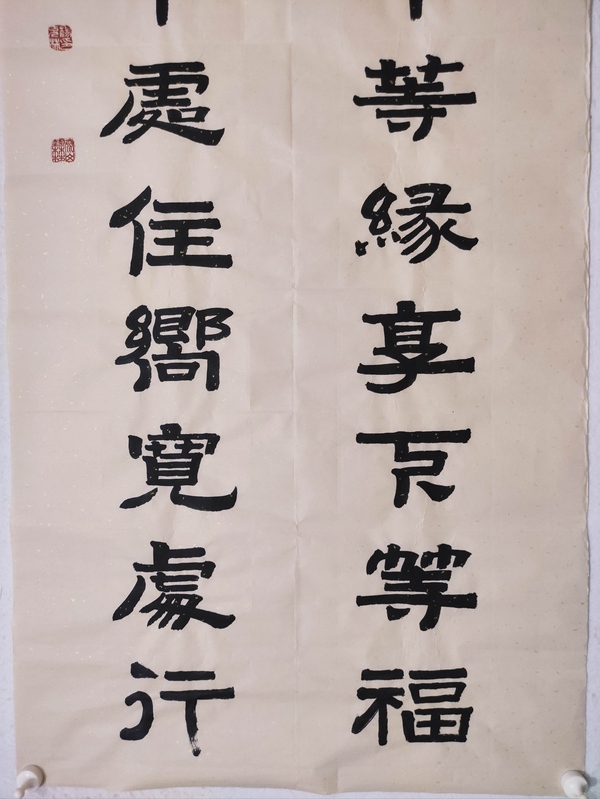 等緣享下等福
處住嚮寬處行